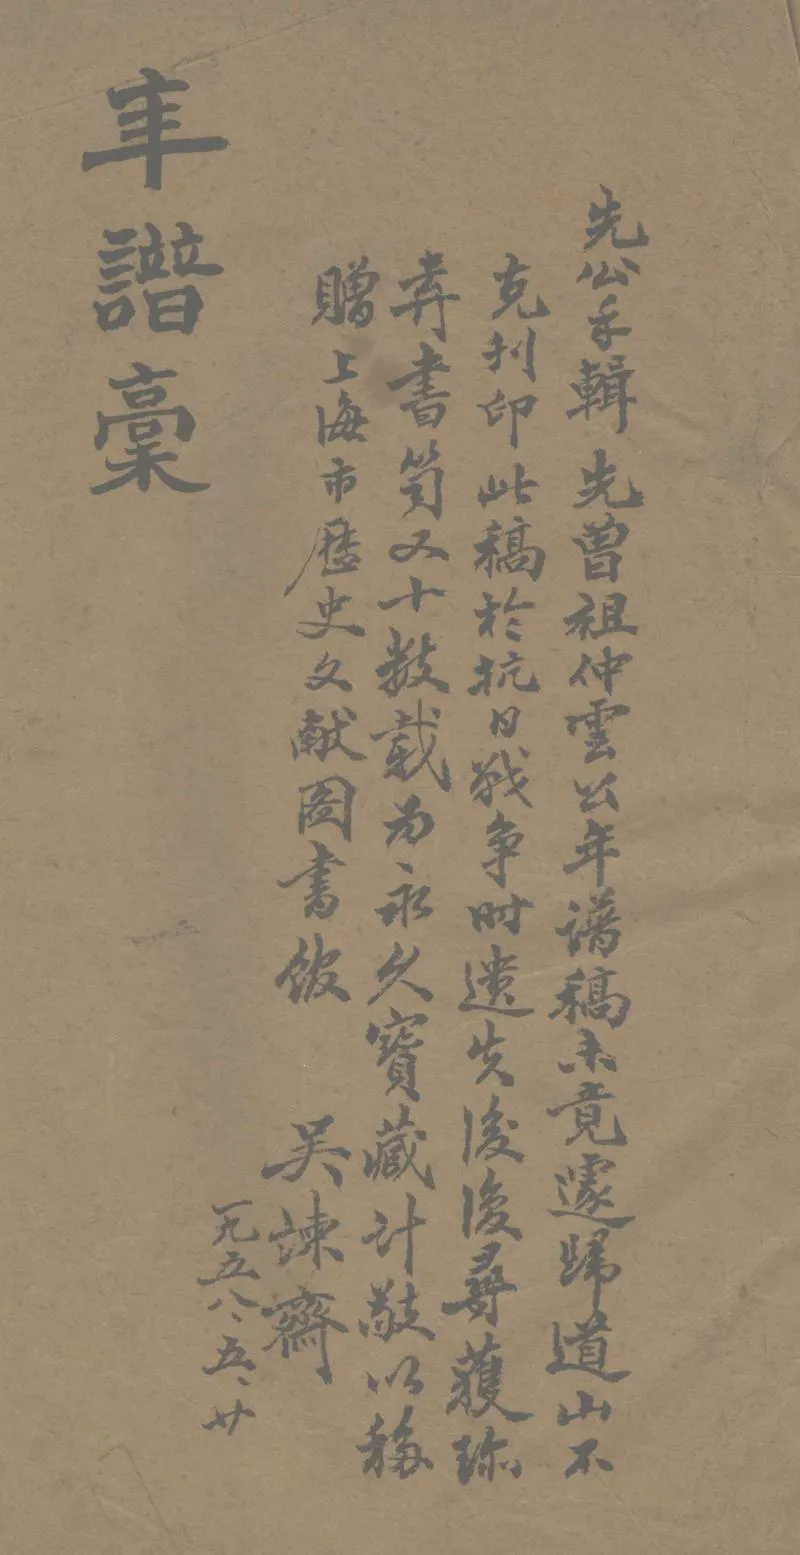 先公手輯 先曾祖仲雲公年譜稿未竟遽歸道山不
克刊印此稿於抗日战争时遗失後復尋獲珎
弆書笥又十数载为永久寶藏计敬以移
贈上海市歷史文献图書馆 吴諫齋
一九五八、五、廿
年譜稾